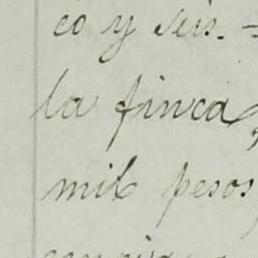 co y seis. =
la finca,
mil pesos,